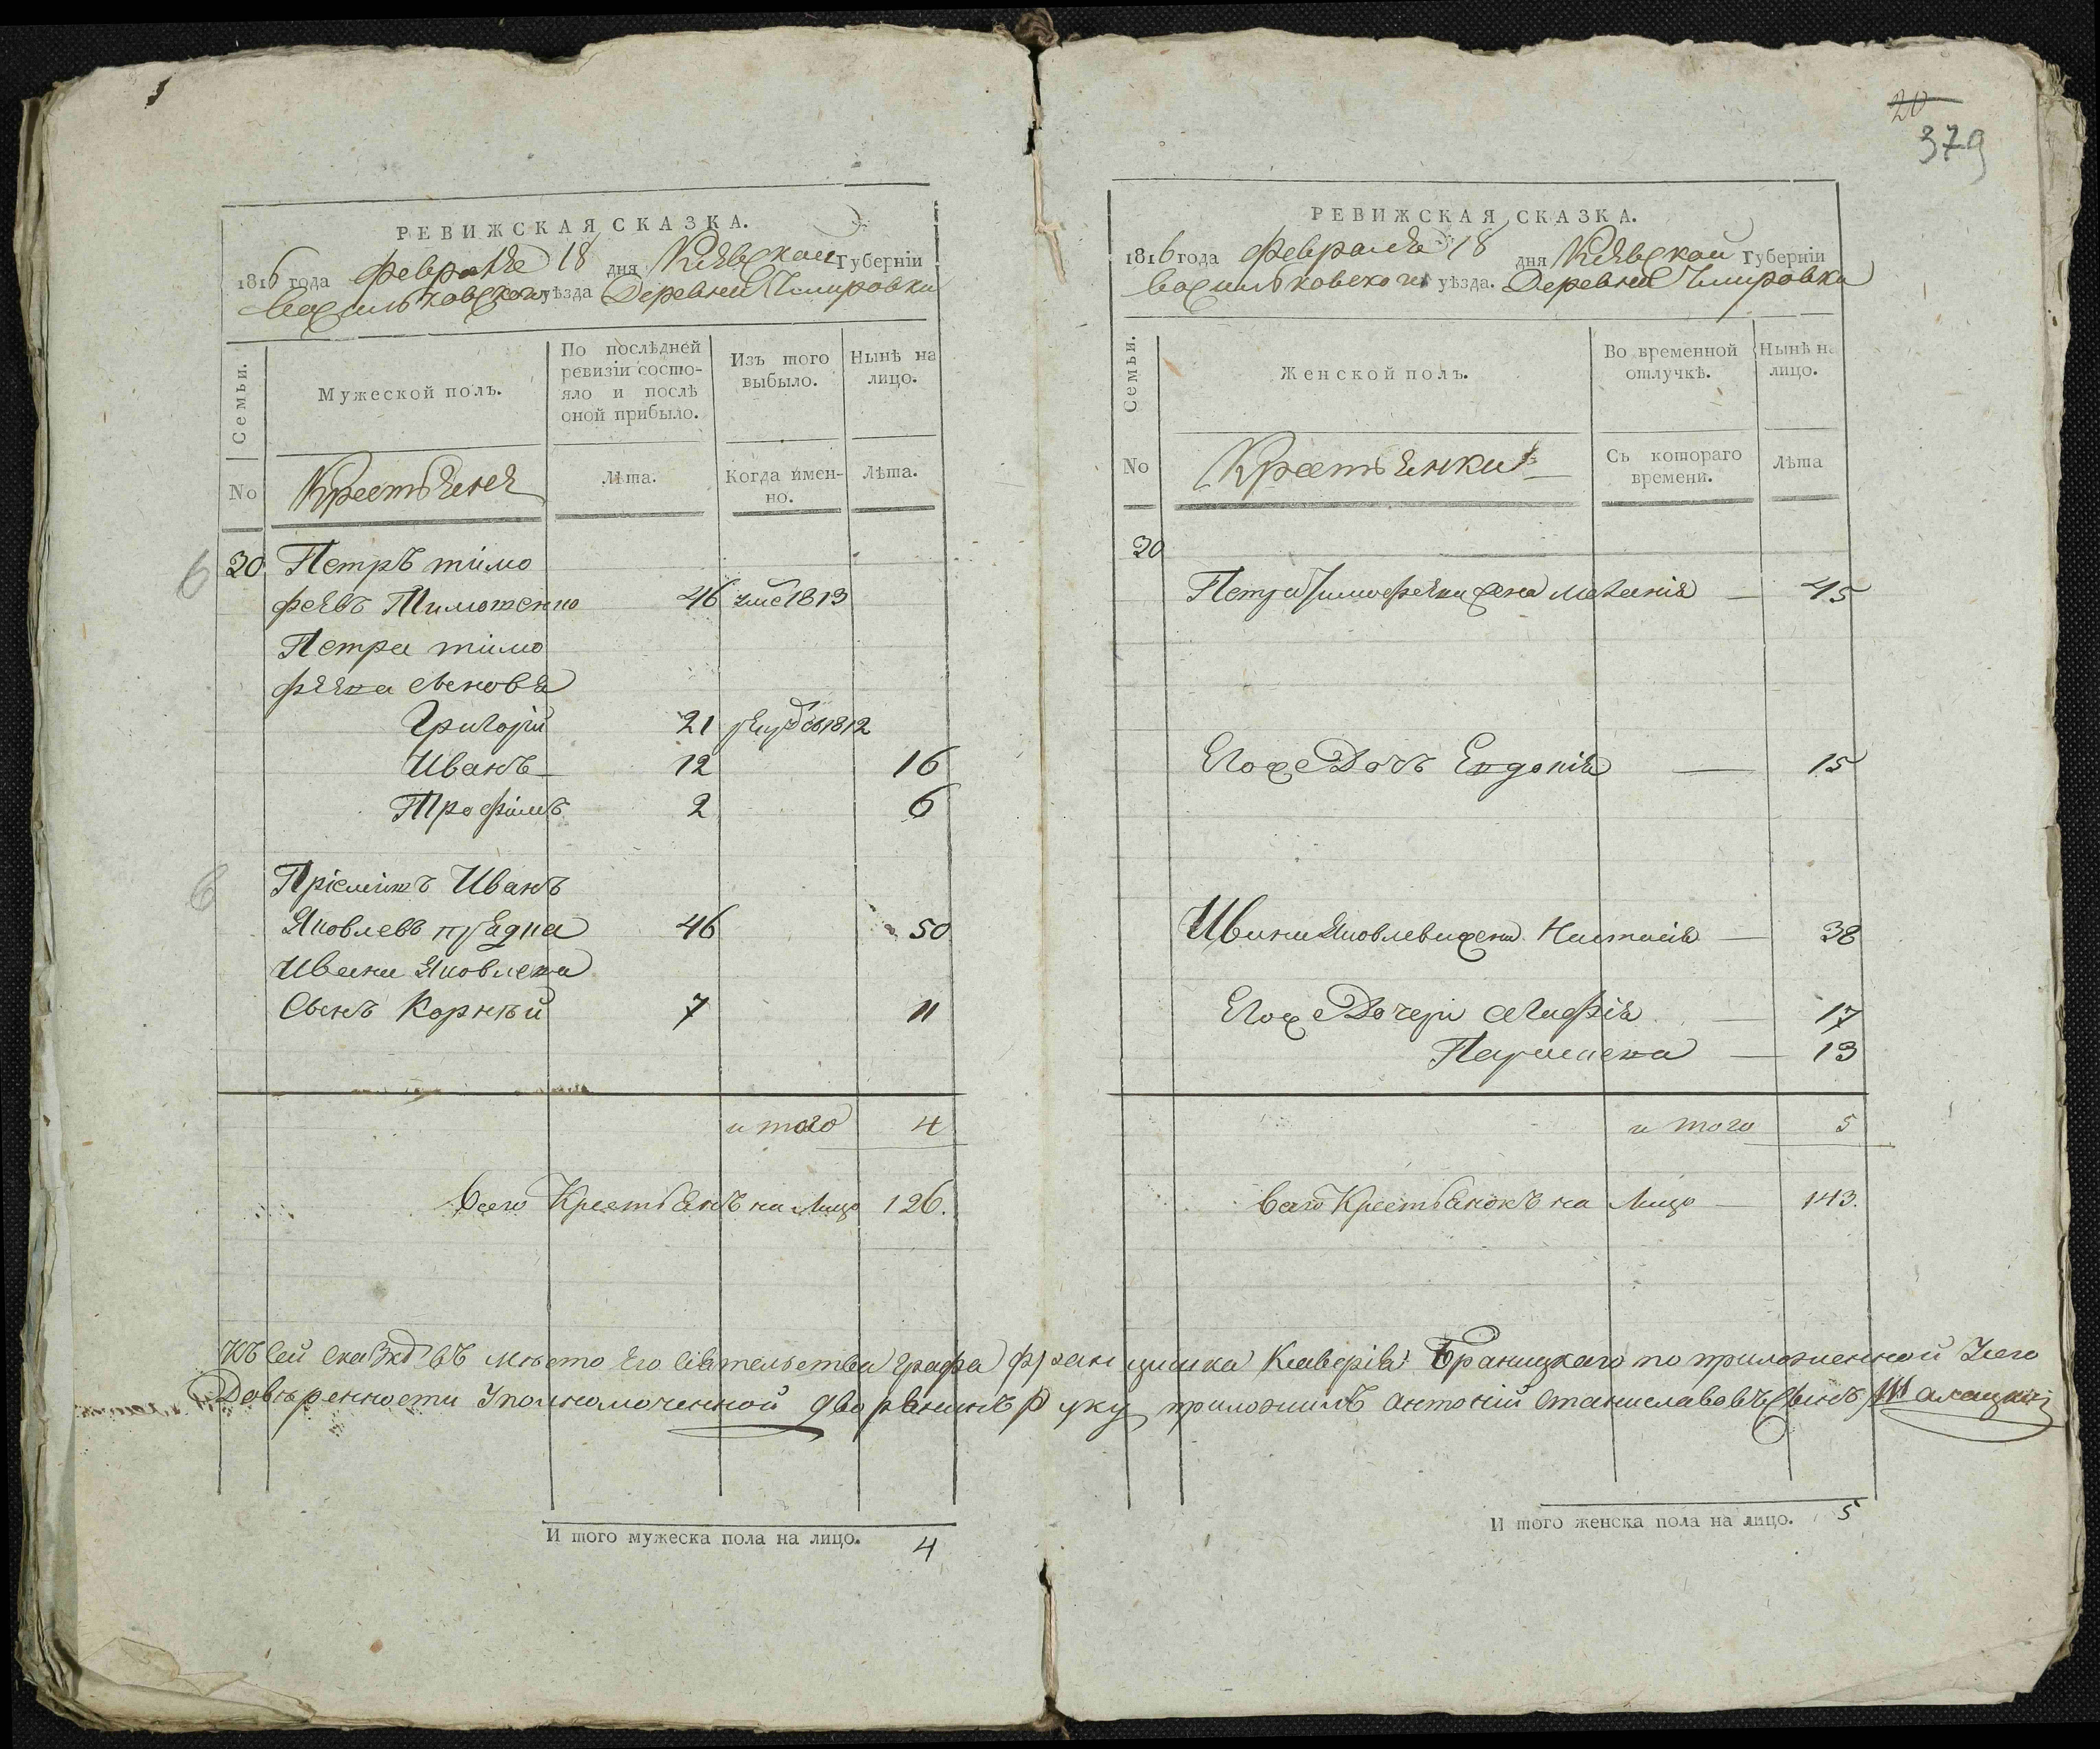 20
379
РЕВИЖСКАЯ СКАЗКА.
1816 года Февраля 18 дня Киевской Губерніи
Васильковского уѣзда Деревни Чмировки
Семьи.
Мужеской полъ.
По послѣдней ревизіи состояло и послѣ оной прибыло.
Изъ того выбыло.
Нынѣ на лицо.
No
Крестьяне
Лѣта.
Когда имен-но.
Лѣта.
6 20 Петръ тимо
феевъ Тимошенко 46 уме 1813
Петра тимо
феева сыновя
Григорій 21 1812
Иванъ 12 16
Трофимъ 2 6
6 Пріемишъ Иванъ
Яковлевъ 46 50
Ивана Яковлева
Сынъ Корнѣй 7 11
итого 4
Всего Крестьянъ на Лицо 126.
И того мужеска пола на лицо. 4
РЕВИЖСКАЯ СКАЗКА.
1816 года Февраля 18 дня Киевской Губерніи
Васильковского уѣзда. Деревни Чмировки
Семьи.
Женской полъ.
Во временной отлучкѣ.
Нынѣ на лицо.
No
Крестьянки
Съ котораго времени.
Лѣта
20
Петра Тимофеева жена Меланія — 45
Егоже Дочь Евдокія — 15
Ивана Яковлева жена Настасія — 38
Егоже Дочери Агафія — 17
Параскева — 13
итого 5
Всего Крестьянокъ на Лицо — 143.
Къ сей сказкѣ въ мѣсто Его сіятельства Графа Францишка Ксаверія Браницкаго по приложенной у сего
Довѣренности Уполномоченной дворянинъ Руку приложилъ Антоній Станиславовъ Сынъ
И того женска пола на лицо. 5